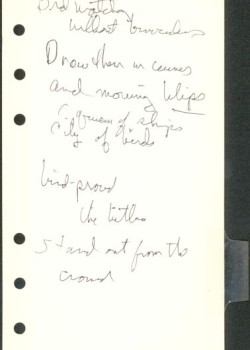 Bird watching
without binoculars
Draw them in
and moving ships
Queen of ships
City of birds
bird-proud
the
Stand out from the
crowd